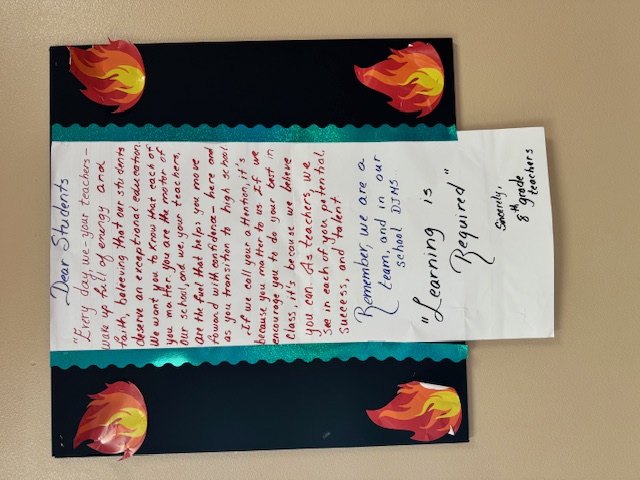 Dear Students
"Every day, we-your teachers-
wake up full of energy and
faith, believing that our students
deserve an exceptional education.
We want you to know that each of
you matter. you are the motor of
our school, and we, your teachers,
are the fuel that helps you move
foward with confidence- here and
as you transition to high school.
. If we call your attention, it's
because you matter to us. If we
encourage you to do your best in
class, it's because we believe
you can. As teachers, we
see in each of you, potential,
success, and talent.
Remember, we are a
team, and in our
school DJMS..
"Learning is
Required"
Sincerely,
8th grade
teachers